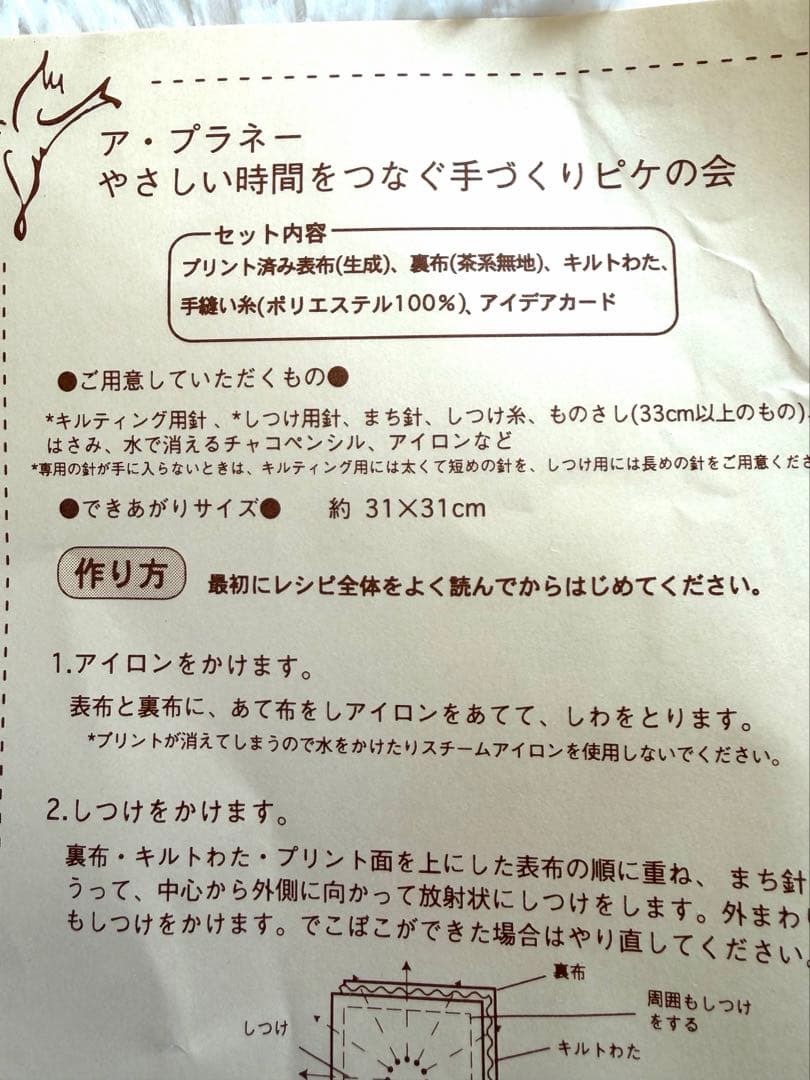 ア・プラネー
やさしい時間をつなぐ手づくりピケの会
セット内容
プリント済み表布(生成)、裏布(茶系無地)、キルトわた、
手縫い糸(ポリエステル100%)、アイデアカード
●ご用意していただくもの●
*キルティング用針、*しつけ用針、まち針、しつけ糸、ものさし(33cm以上のもの)、
はさみ、水で消えるチャコペンシル、アイロンなど
*専用の針が手に入らないときは、キルティング用には太くて短めの針を、しつけ用には長めの針をご用意くださ
●できあがりサイズ● 約 31×31cm
作り方 最初にレシピ全体をよく読んでからはじめてください。
1.アイロンをかけます。
表布と裏布に、あて布をしアイロンをあてて、しわをとります。
*プリントが消えてしまうので水をかけたりスチームアイロンを使用しないでください。
2.しつけをかけます。
裏布・キルトわた・プリント面を上にした表布の順に重ね、まち針
うって、中心から外側に向かって放射状にしつけをします。外まわ
もしつけをかけます。でこぼこができた場合はやり直してください。
裏布
周囲もしつけ
をする
しつけ
キルトわた